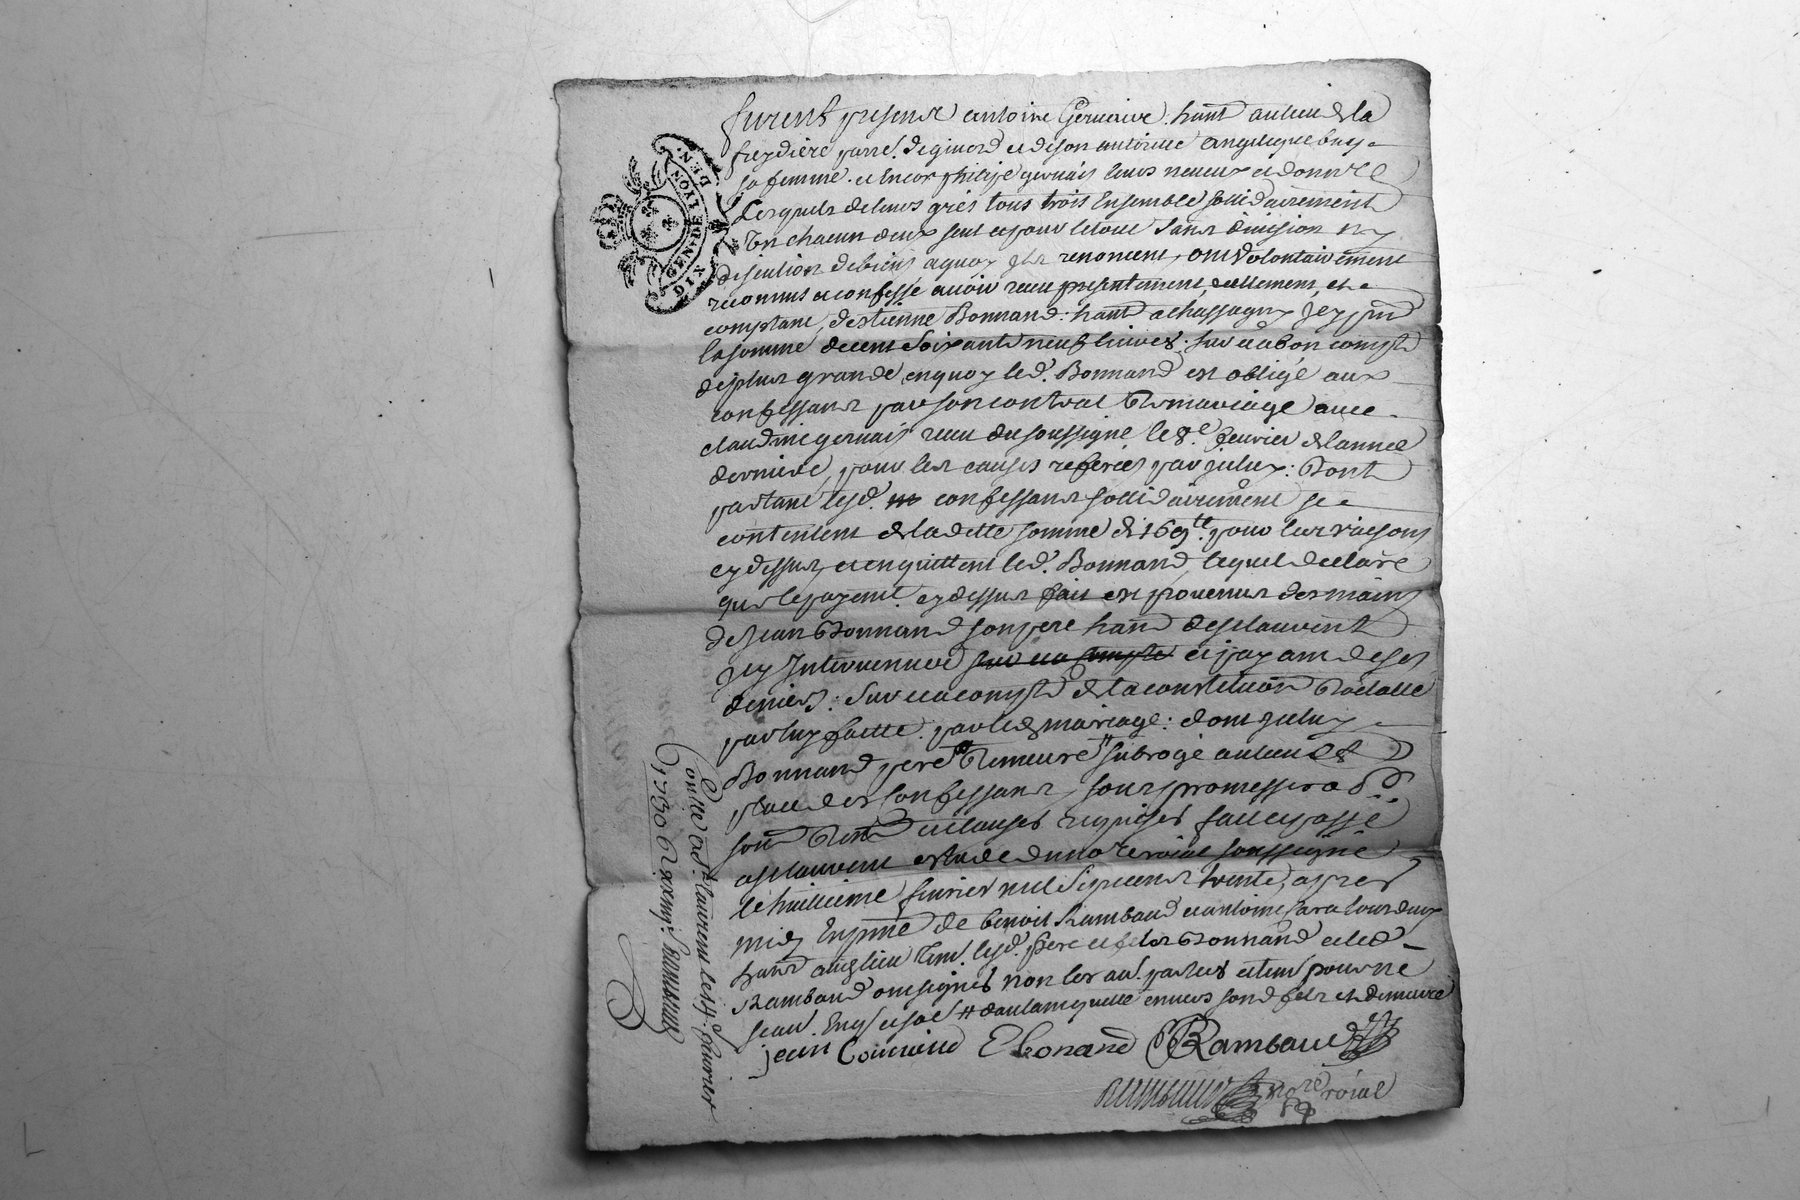 GENER. DE LYON DIX DEN.
furent presens antoine Gervaise habit. au lieu de la
freydiere parr. de givord et de son autorité angelique
sa femme et encor philipe gervais leurs neveux et donnre
Lesquels de leurs grés tous trois Ensemble sollidairement
Un chacun deux seul et pour le tout Sans division ny
discution de biens aquoy ils renoncent, ont volontairement
reconnus et confessé avoir receu presentement, reellement, et
comptant, destienne Bonnand habit. a chassagny Icy pnt
la somme de cent Soixante neuf livres, sur et a bon compte
de plus grande en quoy led. Bonnand est obligé aux
confessans par son contrat de mariage avec
claudine gervais receu du soussigné le 8e. feuvrier de lannée
derniere, pour les causes referées par iceluy: Dont
partant lesd. confessans sollidairement se
contentent de ladette somme de 169 tt. pour les raisons
cy dessus, et en quittent led. Bonnand, lequel declare
que le payemt. cy dessus fait est provenus des mains
de Jean Bonnand son pere habit. de st laurent
Icy Intervenue sur et a compte et payant de ses
deniers: Sur et a compte de la constitution Dotalle
par luy faitte par led. mariage: dont iceluy
Bonnand pere demeure # subrogé au lieu et
place des Confessans, sous promesses obd.
soum. Renon. et clauses requises fait et passé
a st laurent estude du nore roial soussigné
le huitieme fevrier mil sept cens trente, apres
midy En pnce de benoit Rambaud et antoine
habit. audit lieu tem. lesd. pere et fils Bonnand et led.
Rambaud ont signés non les au. parties et tem. pour ne
scavoir Enquis et sol # dautant quitte envers sond. fils et demeure
jean Bonnand E bonand B Rambaud
nore roial
Con.lé a St. laurent le 17. feuvrier
1730